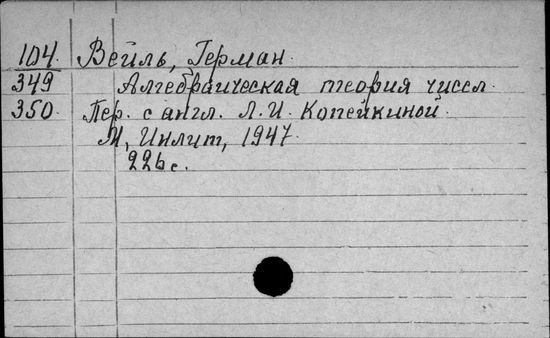 104. Вейль, Герман.
349 Алгебраическая теория чисел.
350. Пер. с англ. Л. И. Копейкиной.
М, Инлит, 1947.
226 с.